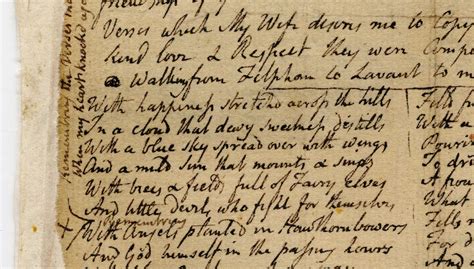 Verses which My Wife desires me to Copy
kind love & Respect they were Compo
Walking from Felpham to Lavant to m
With happiness stretchd across the hills
In a cloud that dewy sweetness distills
With a blue sky spread over with wings
And a mild sun that mounts & sings
With trees & fields full of Fairy elves
And little devils who fight for themselves
Remembring
With Angels planted in Hawthorn bowers
And God himself in the passing hours
With a
To d
A frow
What
Remembring the Verses tha
When my heart knockd aga